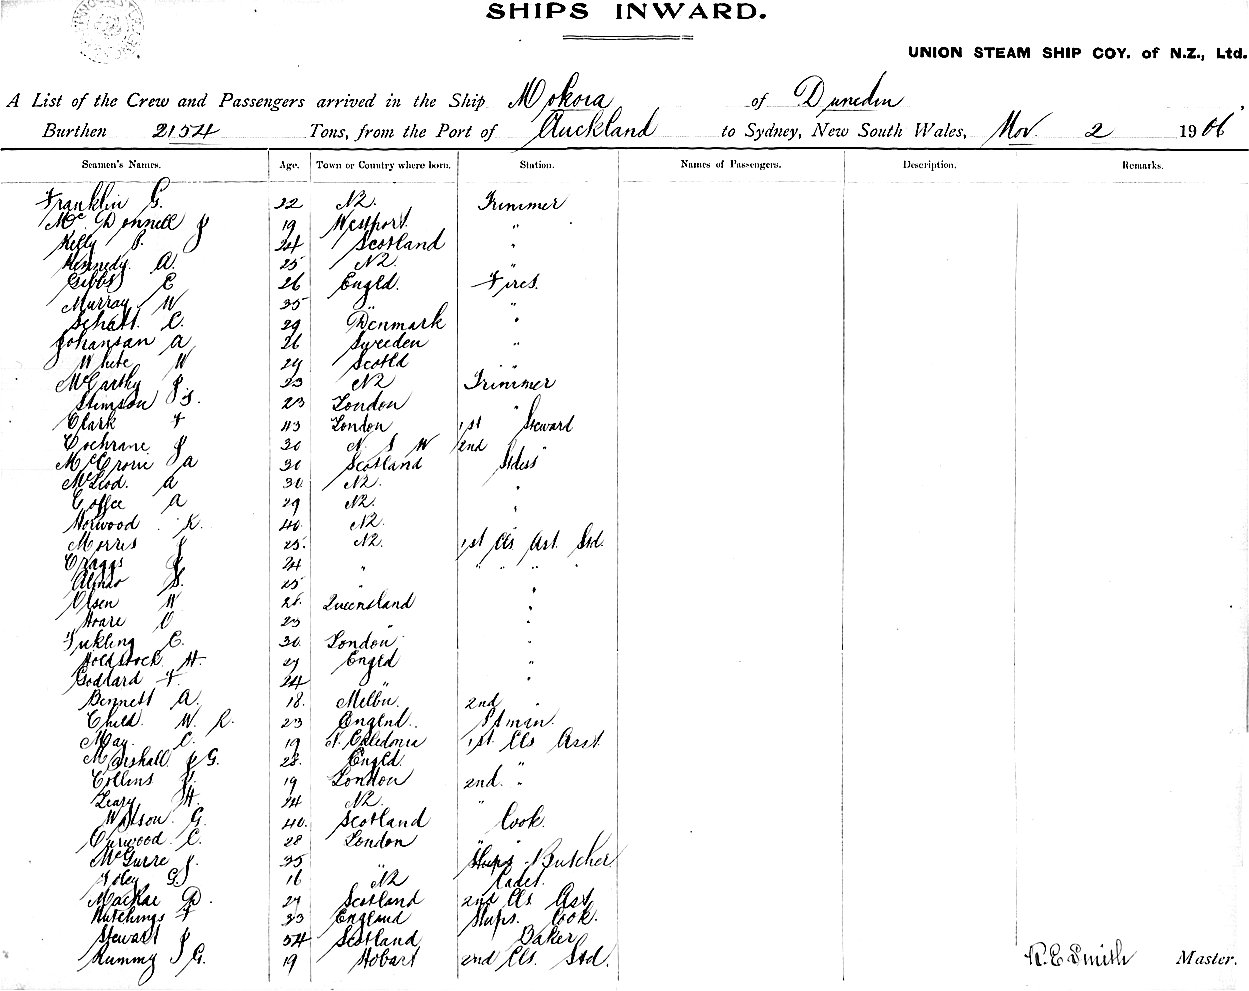 SHIPS INWARD.
UNION STEAM SHIP COY. of N.Z., Ltd.
A List of the Crew and Passengers arrived in the Ship Mokoia of Dunedin
Burthen 2154 Tons, from the Port of Auckland to Sydney, New South Wales, Nov. 2 1906
Seamen's Names. Age. Town or Country where born. Station. Names of Passengers. Description. Remarks.
Franklin G. 22 NZ. Trimmer
McDonnell J 19 Westport "
Kelly P. 24 Scotland "
Kennedy A. 25 NZ. "
Gibbs E 26 Engld. Fires.
Murray W 35 " "
Schatt C. 29 Denmark "
Johansan A 26 Sweeden "
White W 29 Scotld "
McCarthy J. 23 NZ Trimmer
Stimson J S. 23 London "
Clark F 43 London 1st Steward
Cochrane J 30 N S W 2nd "
McCrorie J A 30 Scotland Stders
McLeod. A 30 NZ. "
Coffee A 29 NZ. "
Norwood K. 40. NZ. "
Morris J 25. NZ. 1st Cls Ast. Std.
Craggs J 24 " " " " "
S. 25 " "
Olsen W 28. Queensland "
Hoare O 23 " "
C. 30. London "
Holdstock H. 27 Engld "
Godlard F. 24 " "
Bennett A. 18. Melbn. 2nd "
Child. W. R. 23 Englnd. Ptman.
May. C. 19 N. Caledonia 1st. Cls Asst.
Marshall J G. 28. Engld. "
Collins J. 19 London 2nd. "
Leary H. 24 NZ. "
Watson. G. 40. Scotland Cook.
Curwood C. 28 London " "
McGurre J. 35 " Ships Butcher
Foley G J 16 NZ Cadet.
MacRae D. 27 Scotland 2nd Cls Ast.
Hutchings F 33 England Ships. Cook.
Stewart J 54 Scotland Baker
Rummy J G. 19 Hobart 2nd Cls. Std.
R. E Smith Master.